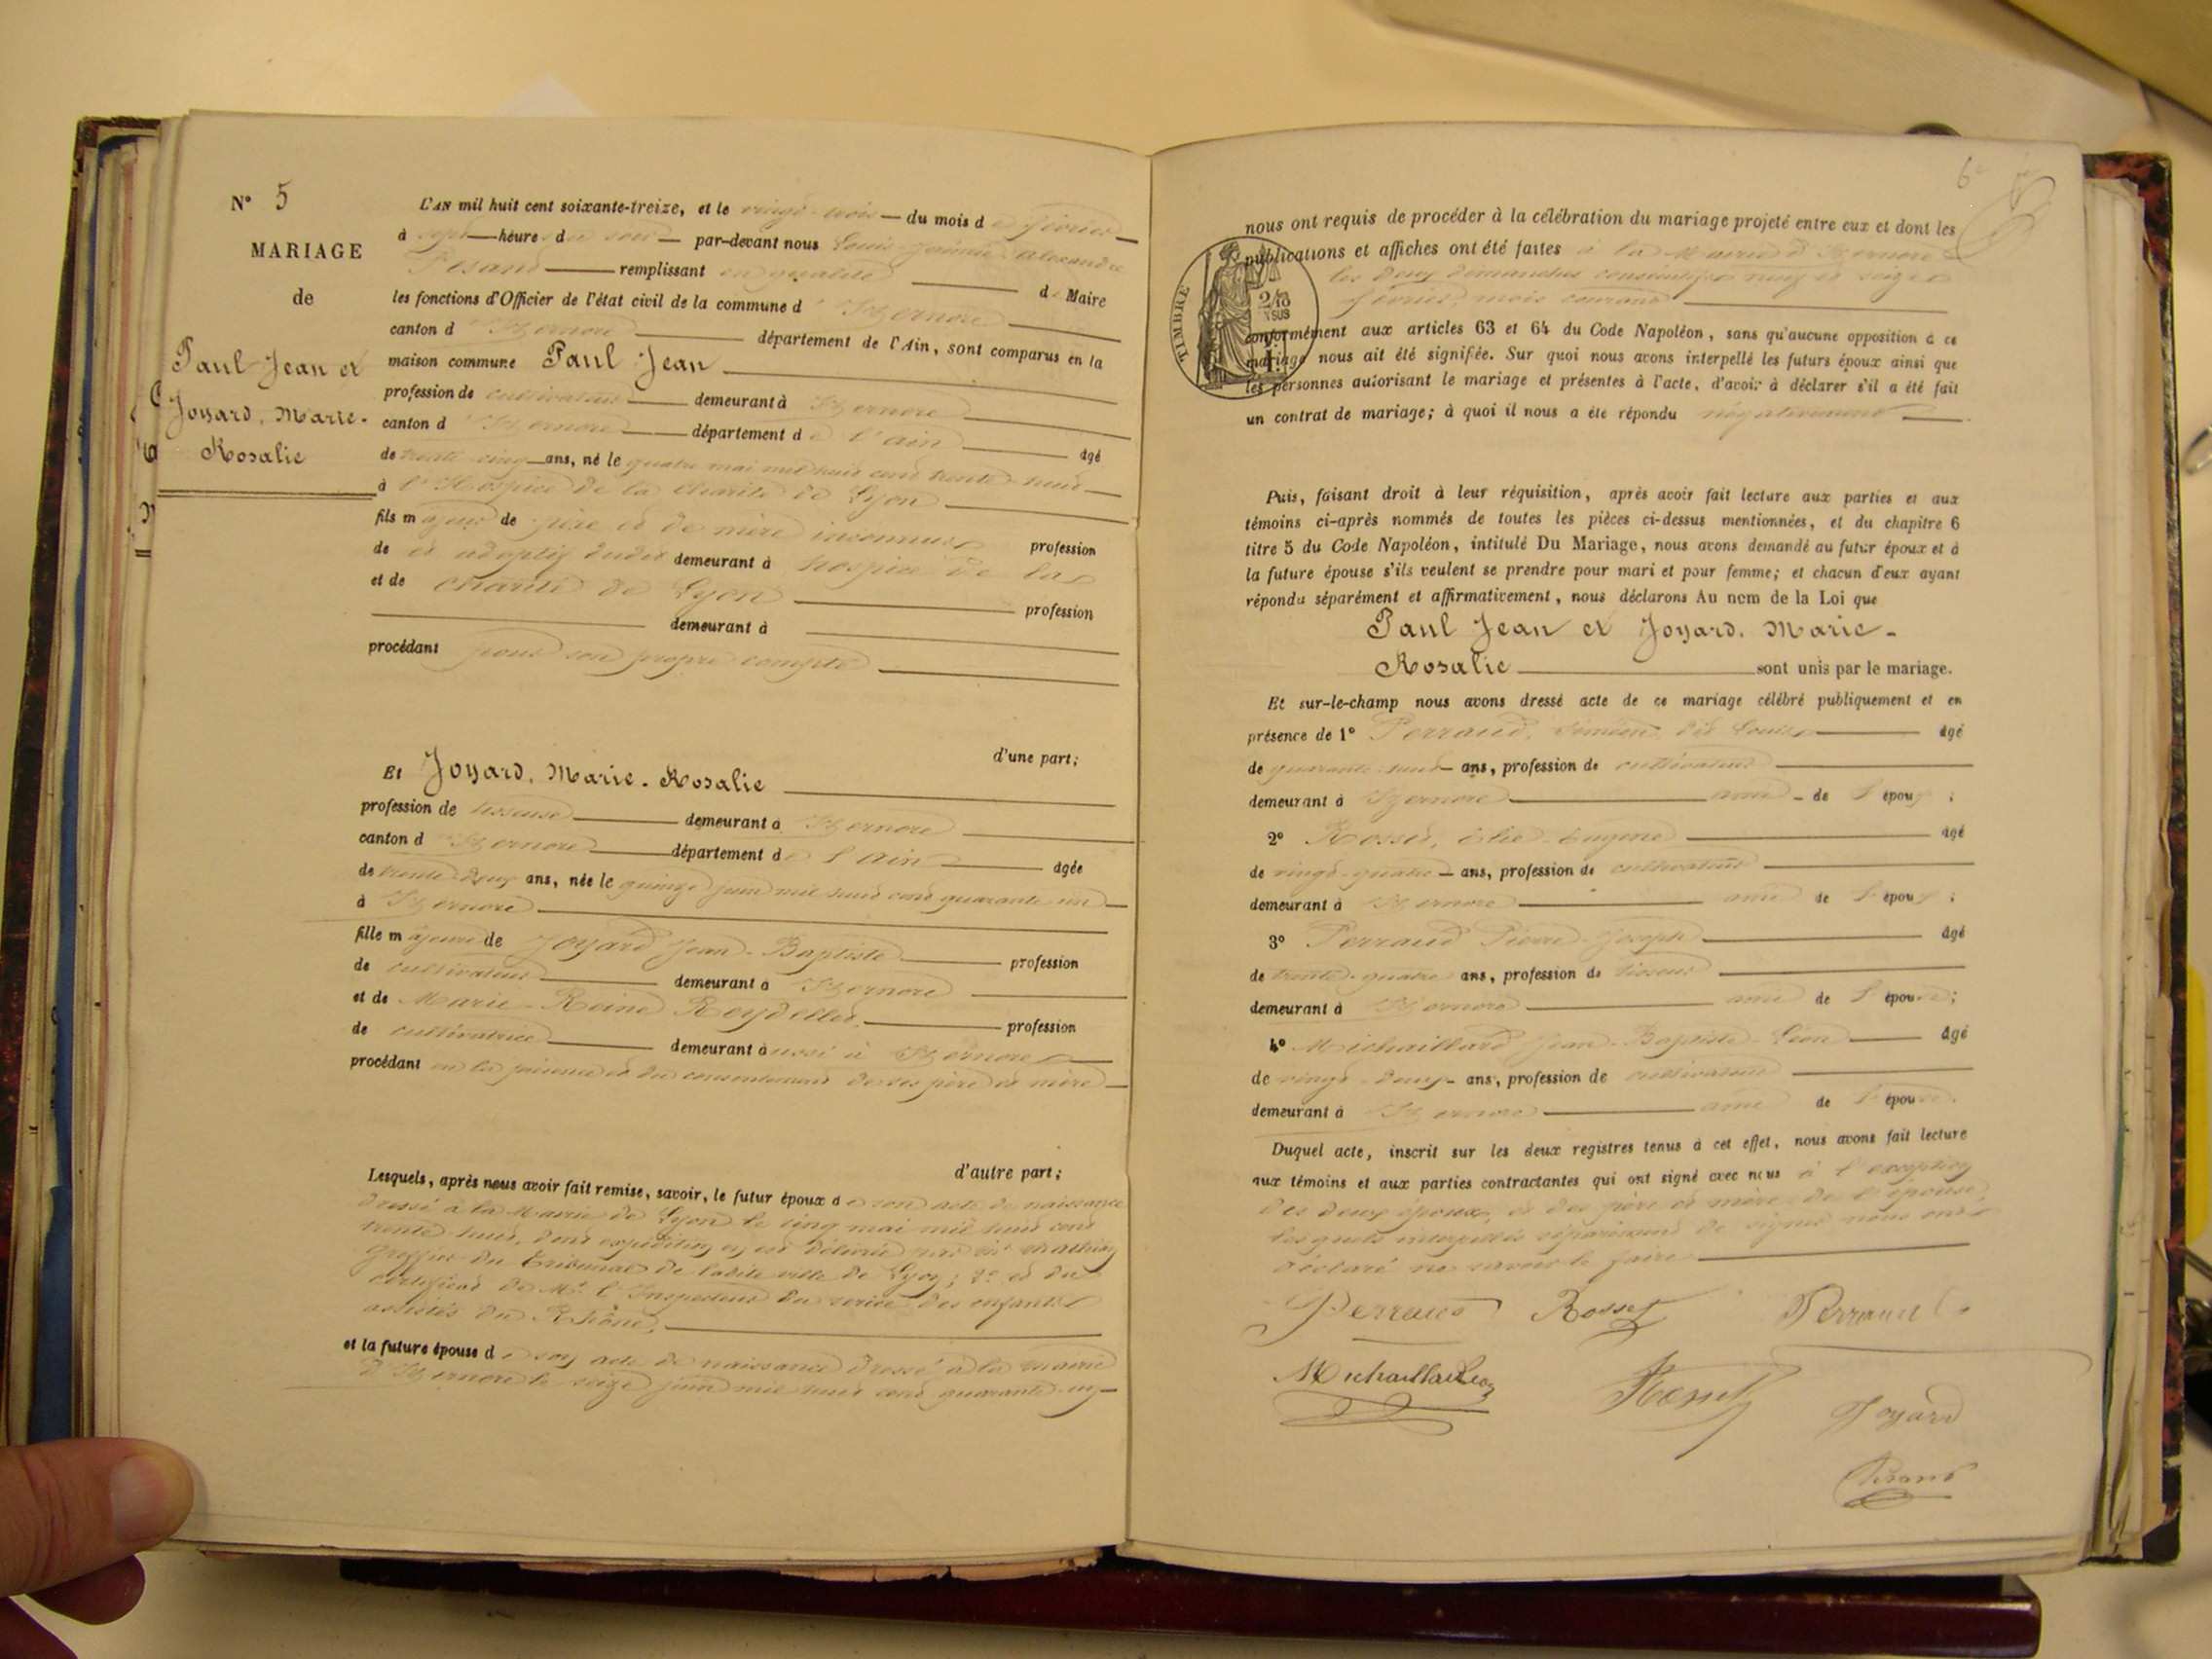 N° 5
MARIAGE
de
Paul Jean et
Joyard, Marie-
Rosalie
L'AN mil huit cent soixante-treize, et le vingt-trois du mois de février
à sept heure du soir par-devant nous Louis Alexandre
remplissant en qualité de Maire
les fonctions d'Officier de l'état civil de la commune d'Izernore
canton d'Izernore département de l'Ain, sont comparus en la
maison commune Paul Jean
profession de cultivateur demeurant à Izernore
canton d'Izernore département de l'ain âgé
de trente-cinq ans, né le quatre mai mil huit cent trente-huit
à l'Hospice de la Charité de Lyon
fils majeur de père et de mère inconnus profession
de et adoptif dudit demeurant à hospice de la
et de charité de Lyon
profession
demeurant à
procédant pour son propre compte
d'une part;
Et Joyard, Marie-Rosalie
profession de tisseuse demeurant à Izernore
canton d'Izernore département de l'Ain âgée
de trente-deux ans, née le quinze juin mil huit cent quarante-un
à Izernore
fille majeure de Joyard Jean-Baptiste profession
de cultivateur demeurant à Izernore
et de Marie-Reine Reydellet profession
de cultivatrice demeurant aussi à Izernore
procédant en la présence et du consentement de ses père et mère
d'autre part;
Lesquels, après nous avoir fait remise, savoir, le futur époux de son acte de naissance
dressé à la Mairie de Lyon le cinq mai mil huit cent
trente-huit, dont expédition en est délivrée par
Greffier du Tribunal de ladite ville de Lyon; 2° et du
certificat de Mr l'Inspecteur du service des enfants
assistés du Rhône.
et la future épouse de son acte de naissance dressé à la mairie
d'Izernore le seize juin mil huit cent quarante-un
6e
nous ont requis de procéder à la célébration du mariage projeté entre eux et dont les
publications et affiches ont été faites à la Mairie d'Izernore
les deux dimanches consécutifs neuf et seize
février, mois courant
TIMBRE
conformément aux articles 63 et 64 du Code Napoléon, sans qu'aucune opposition à ce
mariage nous ait été signifée. Sur quoi nous avons interpellé les futurs époux ainsi que
les personnes autorisant le mariage et présentes à l'acte, d'avoir à déclarer s'il a été fait
un contrat de mariage; à quoi il nous a été répondu négativement
Puis, faisant droit à leur réquisition, après avoir fait lecture aux parties et aux
témoins ci-après nommés de toutes les pièces ci-dessus mentionnées, et du chapitre 6
titre 5 du Code Napoléon, intitulé Du Mariage, nous avons demandé au futur époux et à
la future épouse s'ils veulent se prendre pour mari et pour femme; et chacun d'eux ayant
répondu séparément et affirmativement, nous déclarons Au nom de la Loi que
Paul Jean et Joyard. Marie-
Rosalie sont unis par le mariage.
Et sur-le-champ nous avons dressé acte de ce mariage célébré publiquement et en
présence de 1° Perraud, Louis âgé
de quarante-huit ans, profession de cultivateur
demeurant à Izernore ami de l'époux;
2° Rosset, Elie-Eugene âgé
de vingt-quatre ans, profession de cultivateur
demeurant à Izernore ami de l'époux;
3° Perraud Pierre-Joseph âgé
de trente-quatre ans, profession de tisseur
demeurant à Izernore ami de l'épouse;
4° Michaillard Jean-Baptiste-Léon âgé
de vingt-deux ans, profession de cultivateur
demeurant à Izernore ami de l'épouse.
Duquel acte, inscrit sur les deux registres tenus à cet effet, nous avons fait lecture
aux témoins et aux parties contractantes qui ont signé avec nous à l'exception
des deux époux, et des père et mère de l'épouse,
lesquels interpellés séparément de signer nous ont
déclaré ne savoir le faire
Perraud Rosset Perraud
Michaillard Léon Rosset Joyard